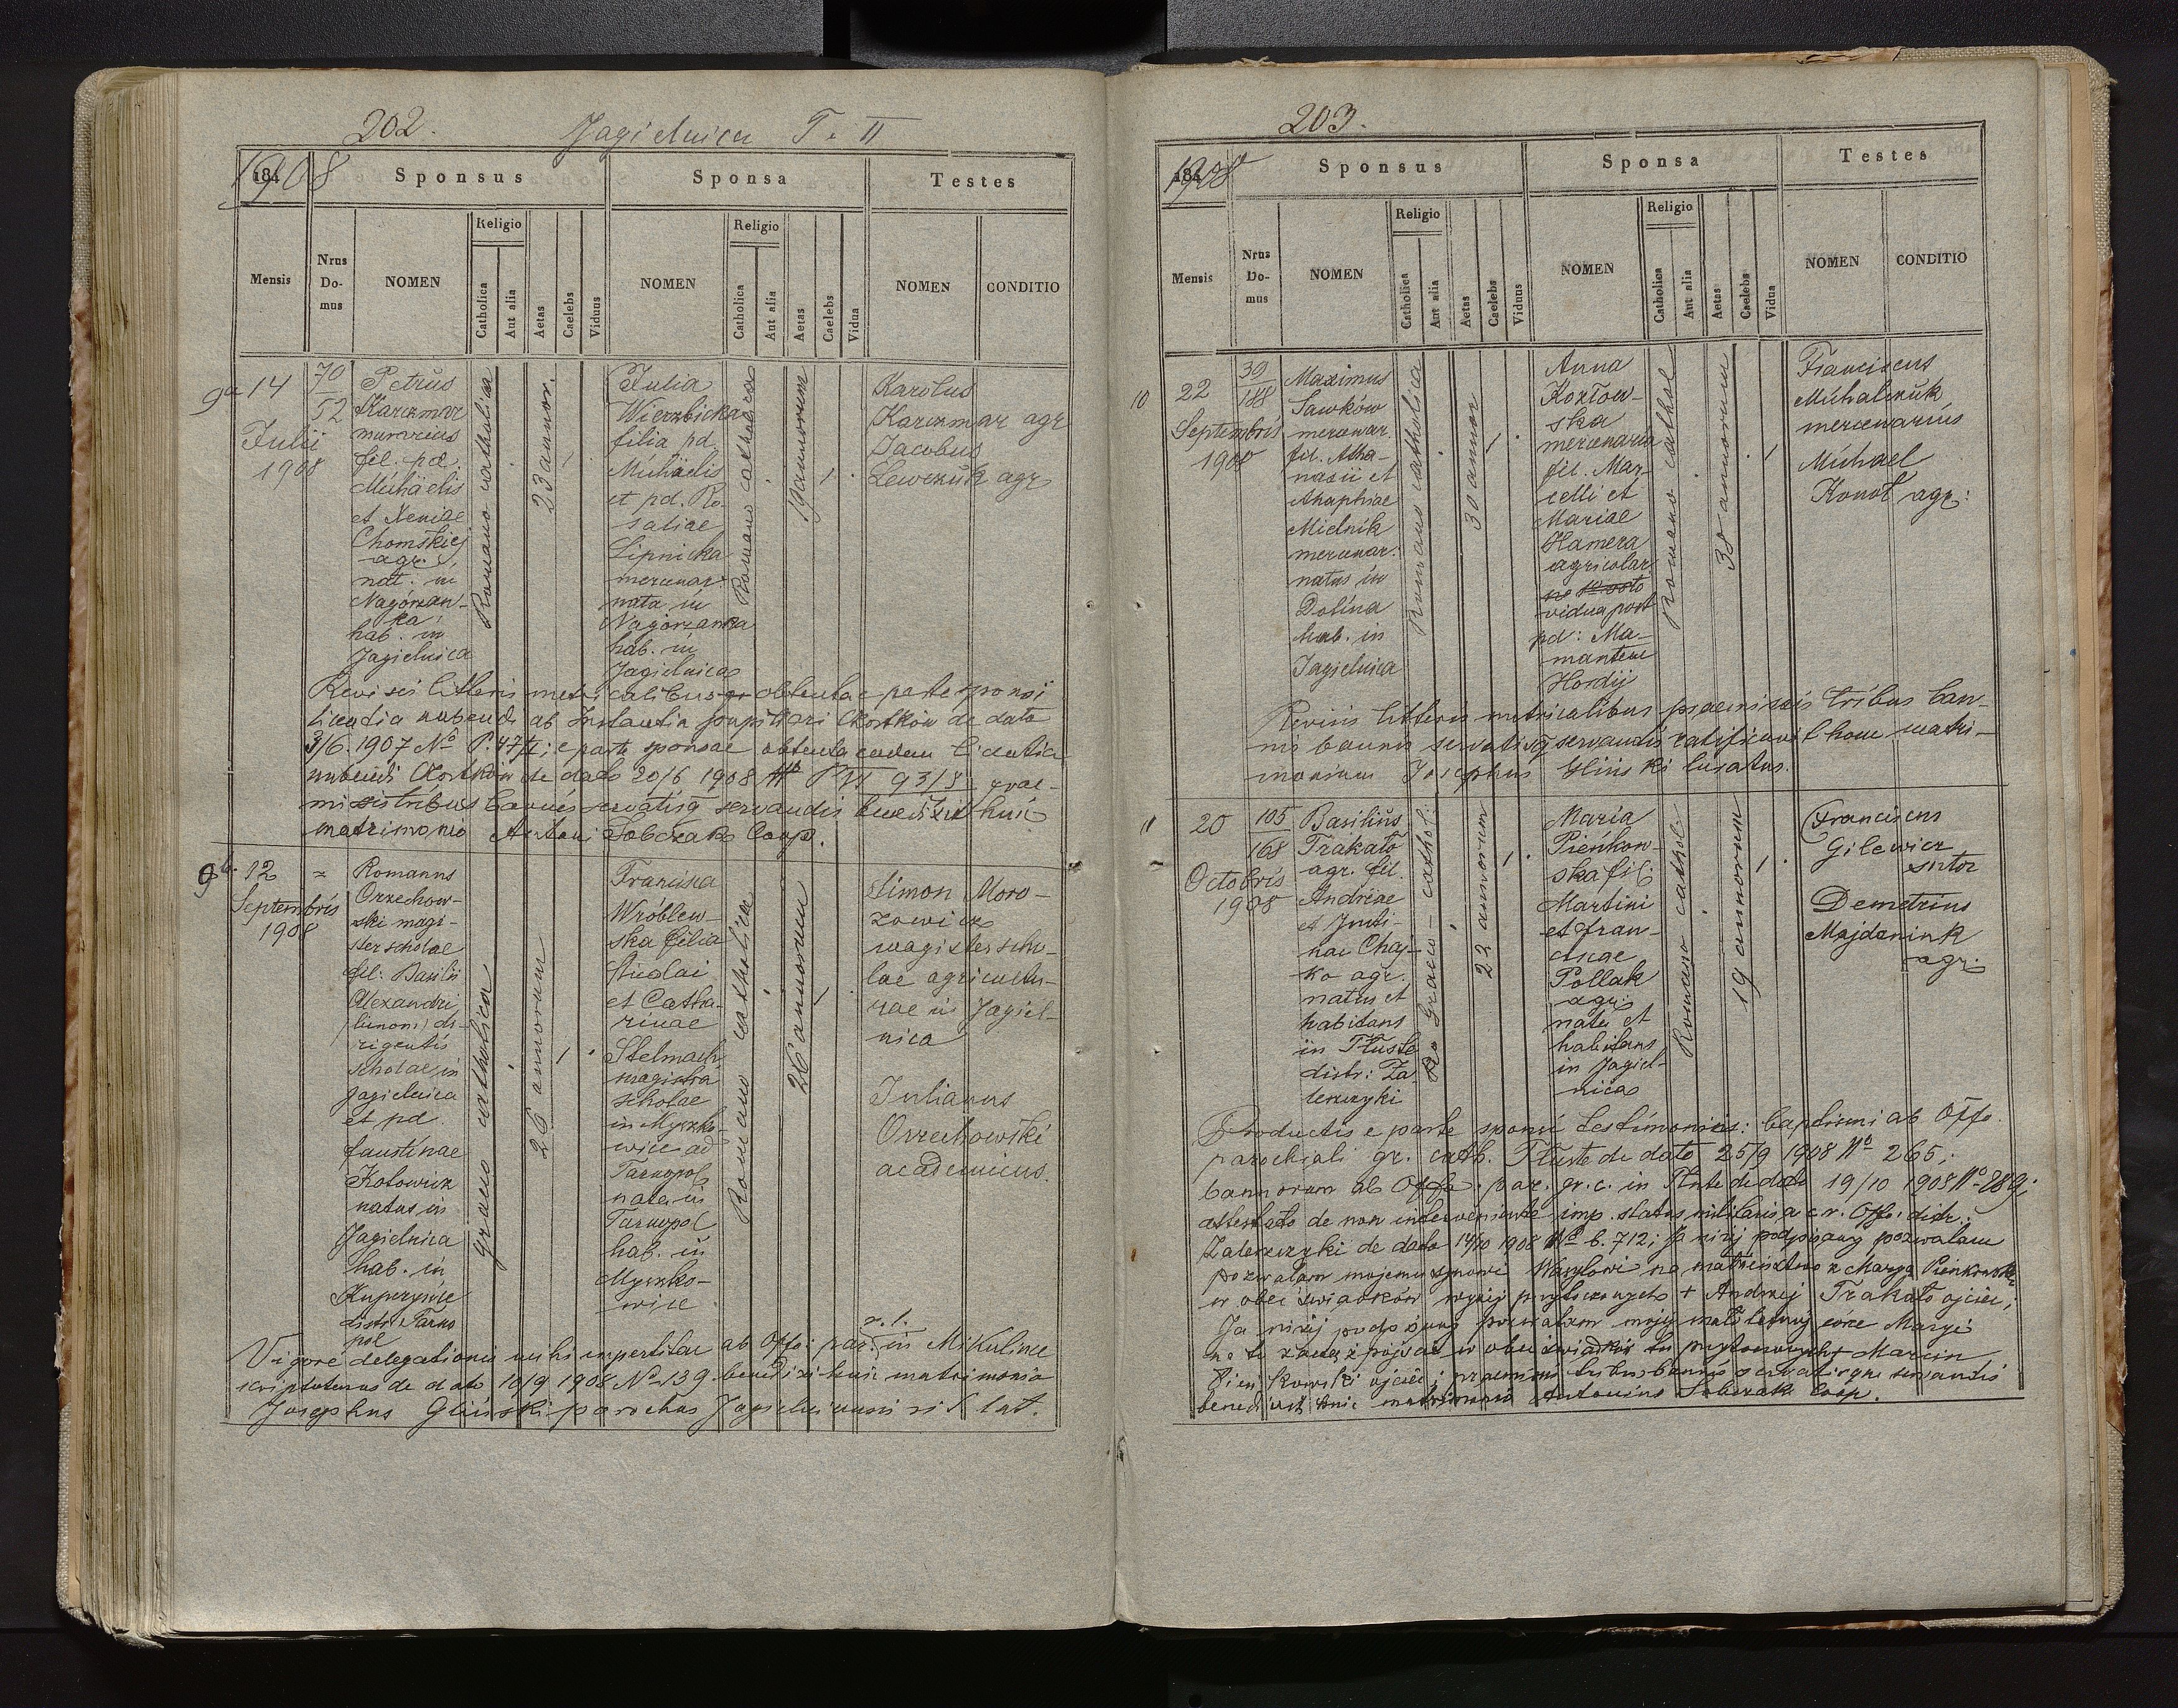 202.
Jagielnica T. II
1908
Sponsus
Sponsa
Testes
Mensis
Nrus Do- mus
NOMEN
Religio
Catholica
Aut alia
Aetas
Caelebs
Viduus
NOMEN
Religio
Catholica
Aut alia
Aetas
Caelebs
Vidua
NOMEN
CONDITIO
9a 14
Julii
1908
70
52
Petrus
Karczmar
murarius
fil. pd.
Michäelis
et Xeniae
Chomskiej
agr.,
nat. in
Nagórzan-
ka;
hab. in
Jagielnica
Romano catholica
23 annor.
Julia
Wierzbicka
filia pd.
Michäelis
et pd. Ro-
saliae
Lipnicka
mercenar.
nata in
Nagórzanka
hab. in
Jagielnica
Romano catholica
19 annorum
Karolus
Karczmar agr
Jacobus
Lewczuk agr
Revisis litteris metricalibus obtenta e parte sponsi
licentia nubendi ab Instantia pupillari Czortków de dato
3/6. 1907 No P. 47/II; e parte sponsae obtenta eadem licentia
nubendi Czortków de dato 20/6 1908 No P VI 93/8 prae-
missis tribus bannis servatisq servandis benedixit huic
matrimonio Antoni Sobczak Coop.
9b. 12
Septembris
1908
Romanus
Orzechow-
ski magi-
ster scholae
fil: Basilii
Alexandri
(binom) di-
rigentis
scholae in
Jagielnica
et pd.
Faustinae
Kotowicz
natus in
Jagielnica
hab. in
Kupczyńce
distr. Tarno
pol
graeco catholica
26 annorum
Francisca
Wróblew-
ska filia
Nicolai
et Catha-
rinae
Stelmach
magistra
scholae
in Myszko-
wice ad
Tarnopol
nata in
Tarnopol
hab. in
Myszko-
wice
Romano catholica
26 annorum
Simon Moro-
zowicz
magister scho-
lae agricultu-
rae in Jagiel-
nica
Julianus
Orzechowski
academicus.
r. l.
Vigore delegationis mihi impertitae ab Offo. par. in Mikulińce
scripto tenus de dato 10/9 1908 No 139 benedixi huic matrimonio
Josephus Gliński parochus Jagielnicensis rit. lat.
203.
1908
Sponsus
Sponsa
Testes
Mensis
Nrus Do- mus
NOMEN
Religio
Catholica
Aut alia
Aetas
Caelebs
Viduus
NOMEN
Religio
Catholica
Aut alia
Aetas
Caelebs
Vidua
NOMEN
CONDITIO
10
22
Septembris
1908
39
188
Maximus
Sawków
mercenar.
fil. Atha-
nasii et
Anaphiae
Mielnik
mercenar.
natus in
Dolina
hab. in
Jagielnica
Romano catholica
30 annor
Anna
Kozłow-
ska
mercenaria
fil. Mar-
celli et
Mariae
Hamera
agricolar
vidua post
pd: Ma-
mantem
Hordij
Romano cathol
38 annorum
Franciscus
Michalczuk
mercenarius
Michael
Konot agr:
Revisis litteris metricalibus praemissis tribus ban-
nis bannis servatisq servandis ratificavit hoc matri-
monium Josephus Gliński curatus.
11
20
Octobris
1908
105
168
Basilius
Trakało
agr. fil.
Andreae
et Justi-
nae Chaj-
ko agr.
natus et
habitans
in Tłuste
distr: Za-
leszczyki
Graeco - cathol:
22 annorum
Maria
Pieńkow-
ska fil:
Martini
et Fran-
ciscae
Pollak
agr:
nata et
habitans
in Jagiel-
nica
Romano cathol:
19 annorum
Franciscus
Gilewicz
sutor
Demetrius
Majdaniuk
agr:
Productis e parte sponsi testimoniis: baptismi ab Offo.
parochiali gr. cath. Tłuste de dato 25/9 1908 No 265;
bannorum ab Offo. par. gr. c. in Tłuste de dato 19/10 1908 No 289;
attestato de non interveniente imp. status militaris a c. r. Offo. distr.
Zaleszczyki de dato 14/10 1908 No b. 712; Ja niżej podpisany pozwalam
pozwalam mojemu synowi Wasylowi na małżeństwo z Maryą Pieńkowską
w obec świadków wyżej przytoczonych + Andrzej Trakało ojciec;
Ja niżej podpisany pozwalam mojej małoletniej córce Maryi
na to zawrzeć pojście w obec świadków tu przytoczonych + Marcin
Pieńkowski ojciec; praemissis tribus bannis servatisque servandis
benedixit huic matrimonio Antonius Sobczak Coop.